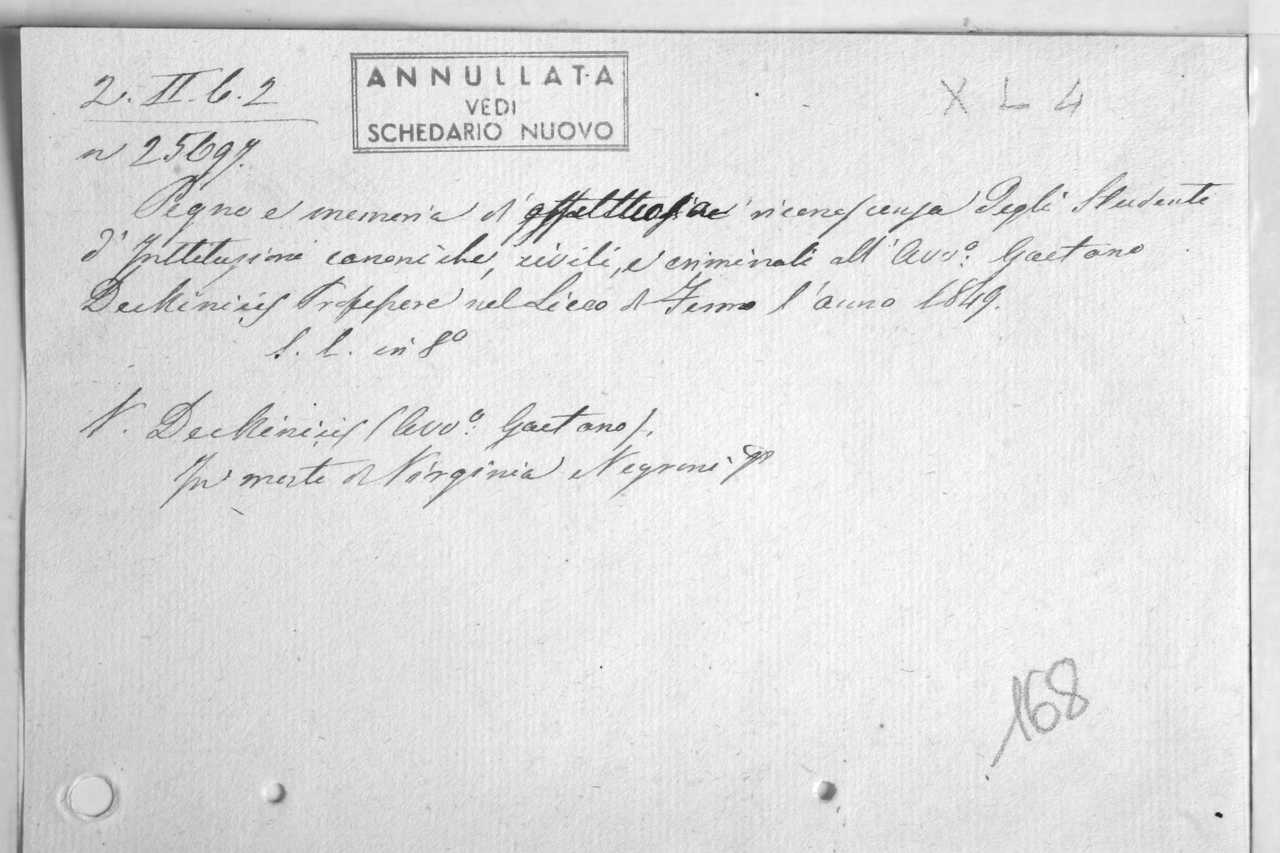 2. II. 6. 2
ANNULLATA
VEDI
SCHEDARIO NUOVO
X L 4
n 25697.
Pegno e memoria d' affettuosa riconoscenza degli Studenti
d' Instituzioni canoniche, civili, e criminali all' Avvo. Gaetano
Deckinis Professore nel Liceo di Fermo l' anno 1849.
S. L. in 8º
V. (Avvo. Gaetano).
In morte di Virginia Negroni
168